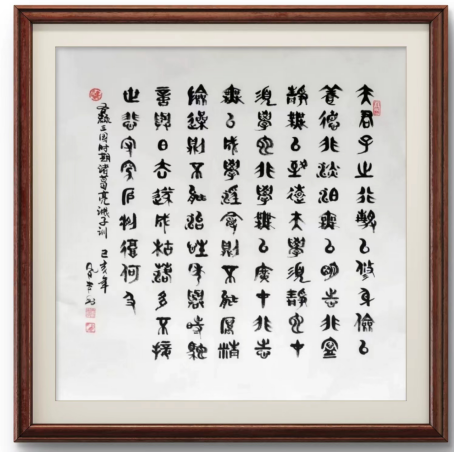 夫君子之行静以修身儉以
養德非淡泊無以明志非寧
靜無以致遠夫學須靜也才
須學也非學無以廣才非志
無以成學淫慢則不能勵精
險躁則不能治性年與時馳
意與日去遂成枯落多不接
世悲守窮廬將復何及
三国时期诸葛亮诫子训 己亥年